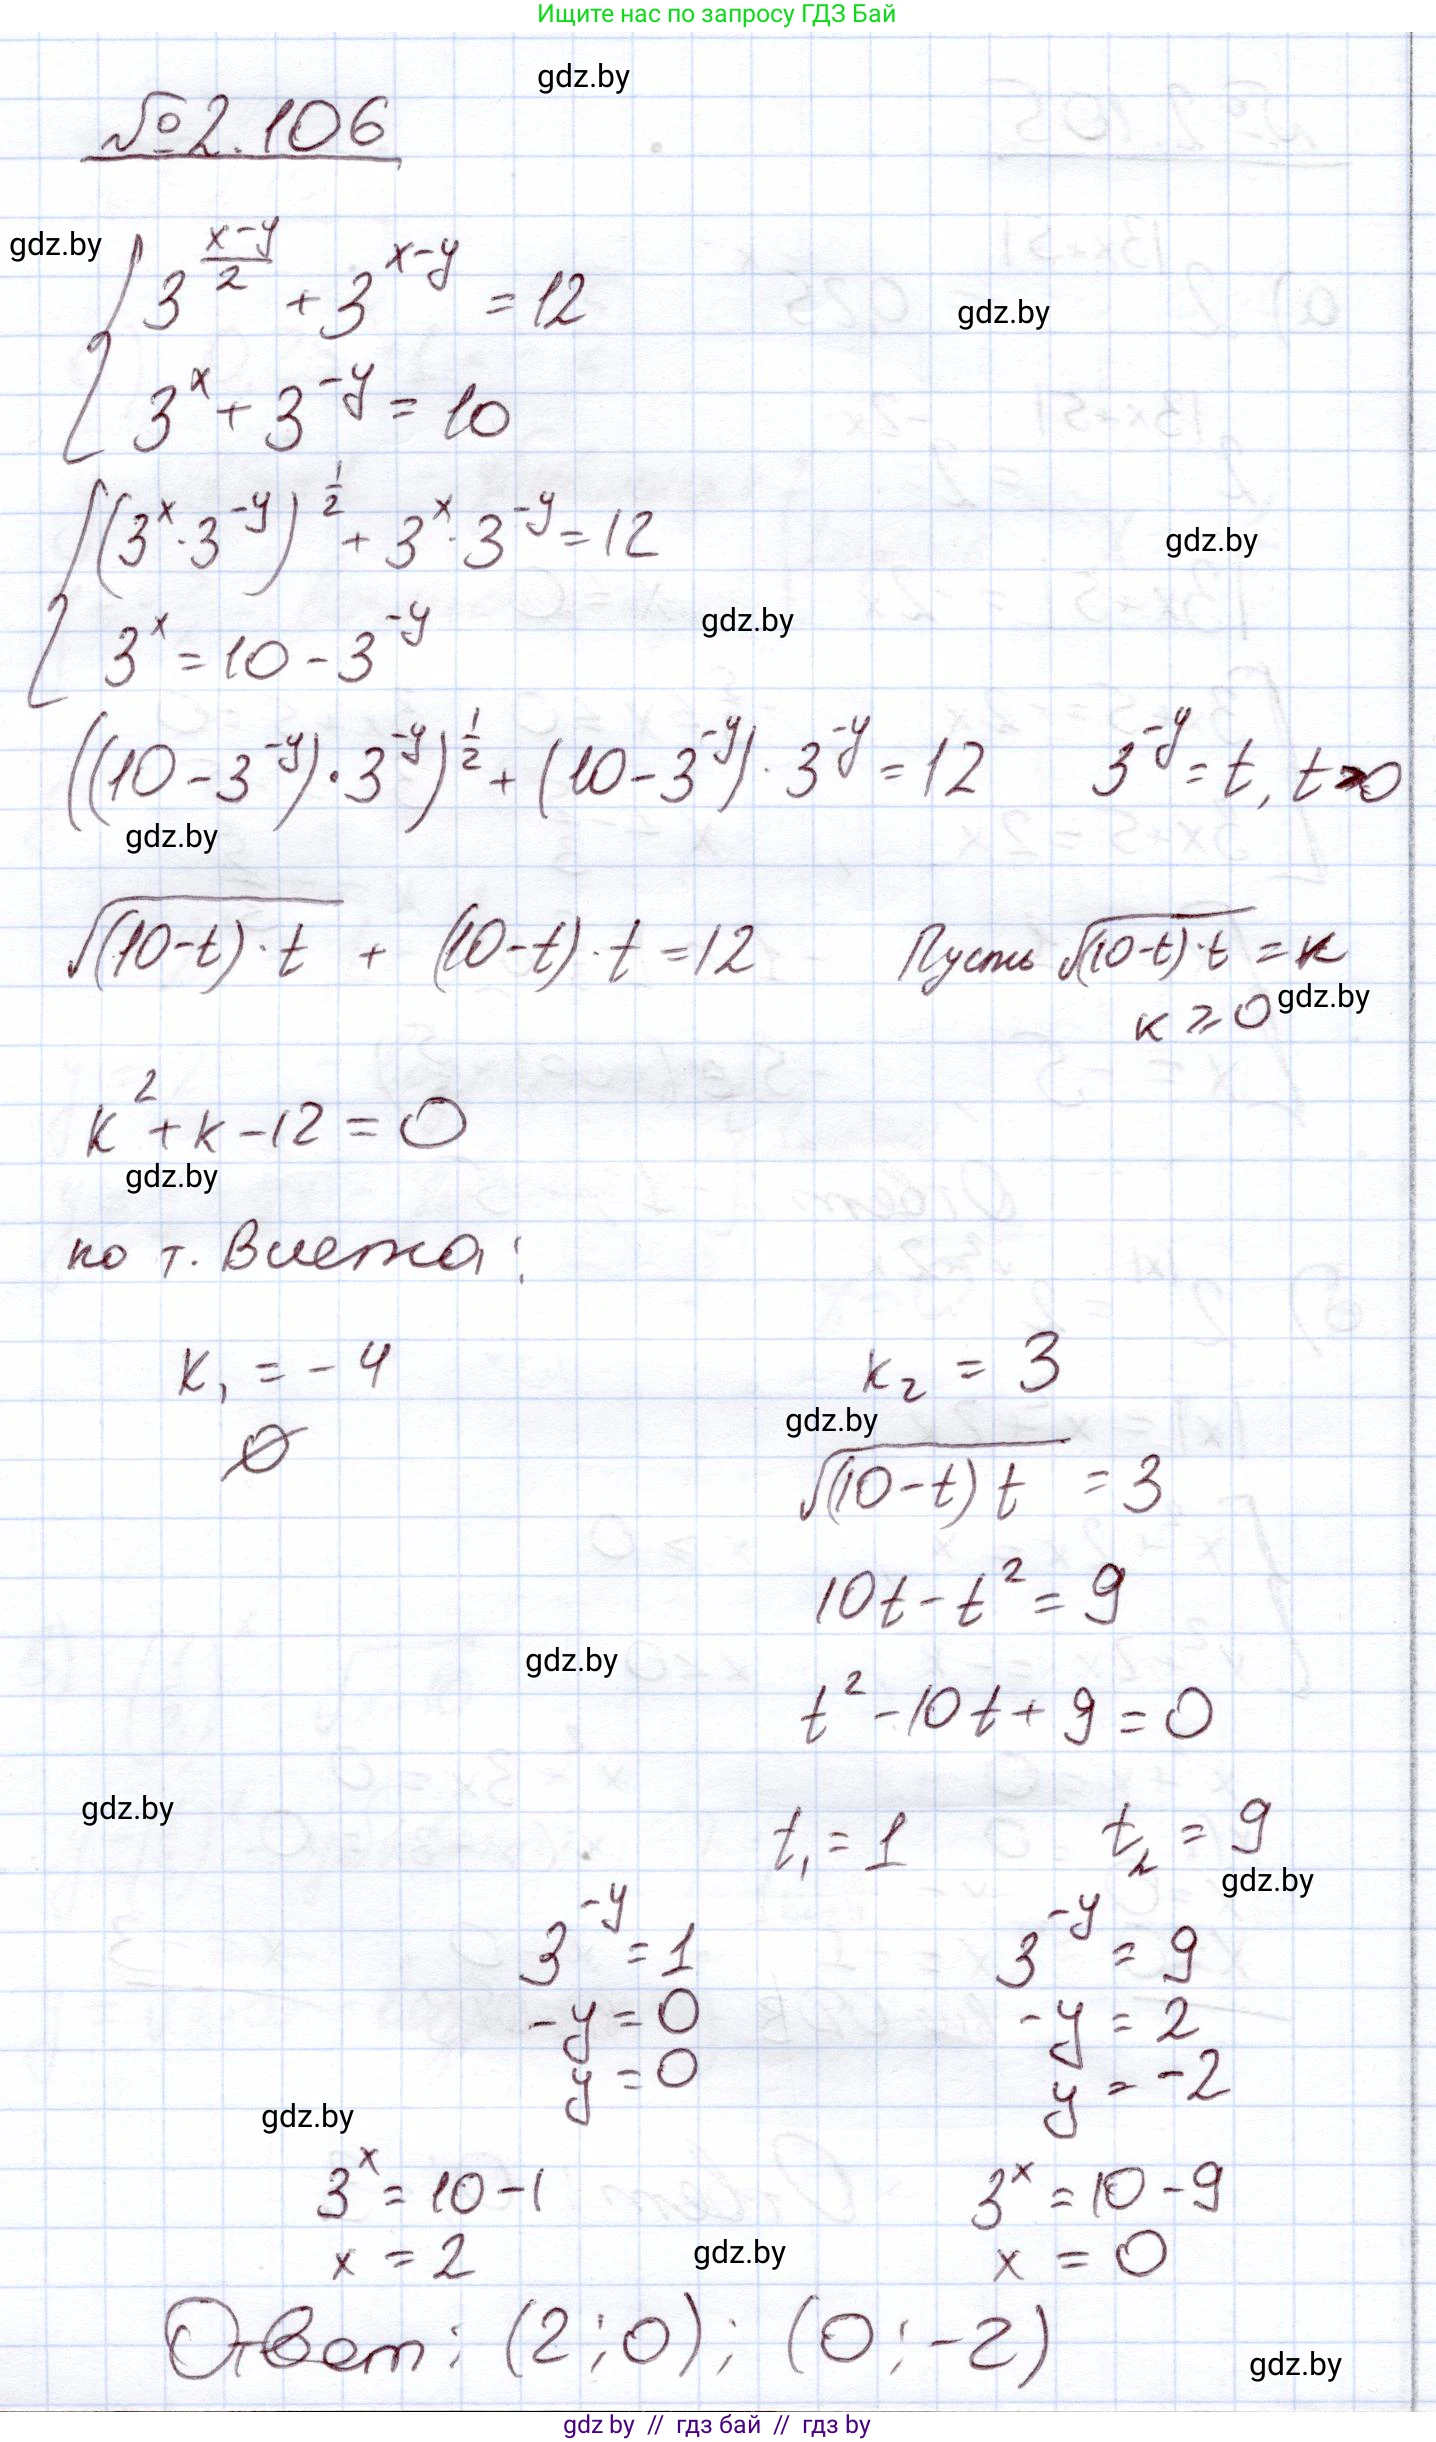 Ищите нас по запросу ГДЗ Бай
gdz.by
№2.106
gdz.by
3^((x-y)/2) + 3^(x-y) = 12
gdz.by
3^x + 3^(-y) = 10
(3^x · 3^(-y))^(1/2) + 3^x · 3^(-y) = 12
gdz.by
3^x = 10 - 3^(-y)
gdz.by
((10 - 3^(-y)) · 3^(-y))^(1/2) + (10 - 3^(-y)) · 3^(-y) = 12    3^(-y) = t, t > 0
gdz.by
√((10-t)·t) + (10-t)·t = 12    Пусть √((10-t)·t) = к
к ≥ 0
gdz.by
k² + k - 12 = 0
gdz.by
по т. Виета:
к₁ = -4    к₂ = 3
gdz.by
∅    √((10-t)t) = 3
10t - t² = 9
gdz.by
t² - 10t + 9 = 0
gdz.by
t₁ = 1    t₂ = 9
gdz.by
3^(-y) = 1    3^(-y) = 9
-y = 0    -y = 2
y = 0    y = -2
gdz.by
3^x = 10 - 1    3^x = 10 - 9
x = 2    x = 0
gdz.by
Ответ: (2;0); (0;-2)
gdz.by
gdz by // гдз бай // гдз by